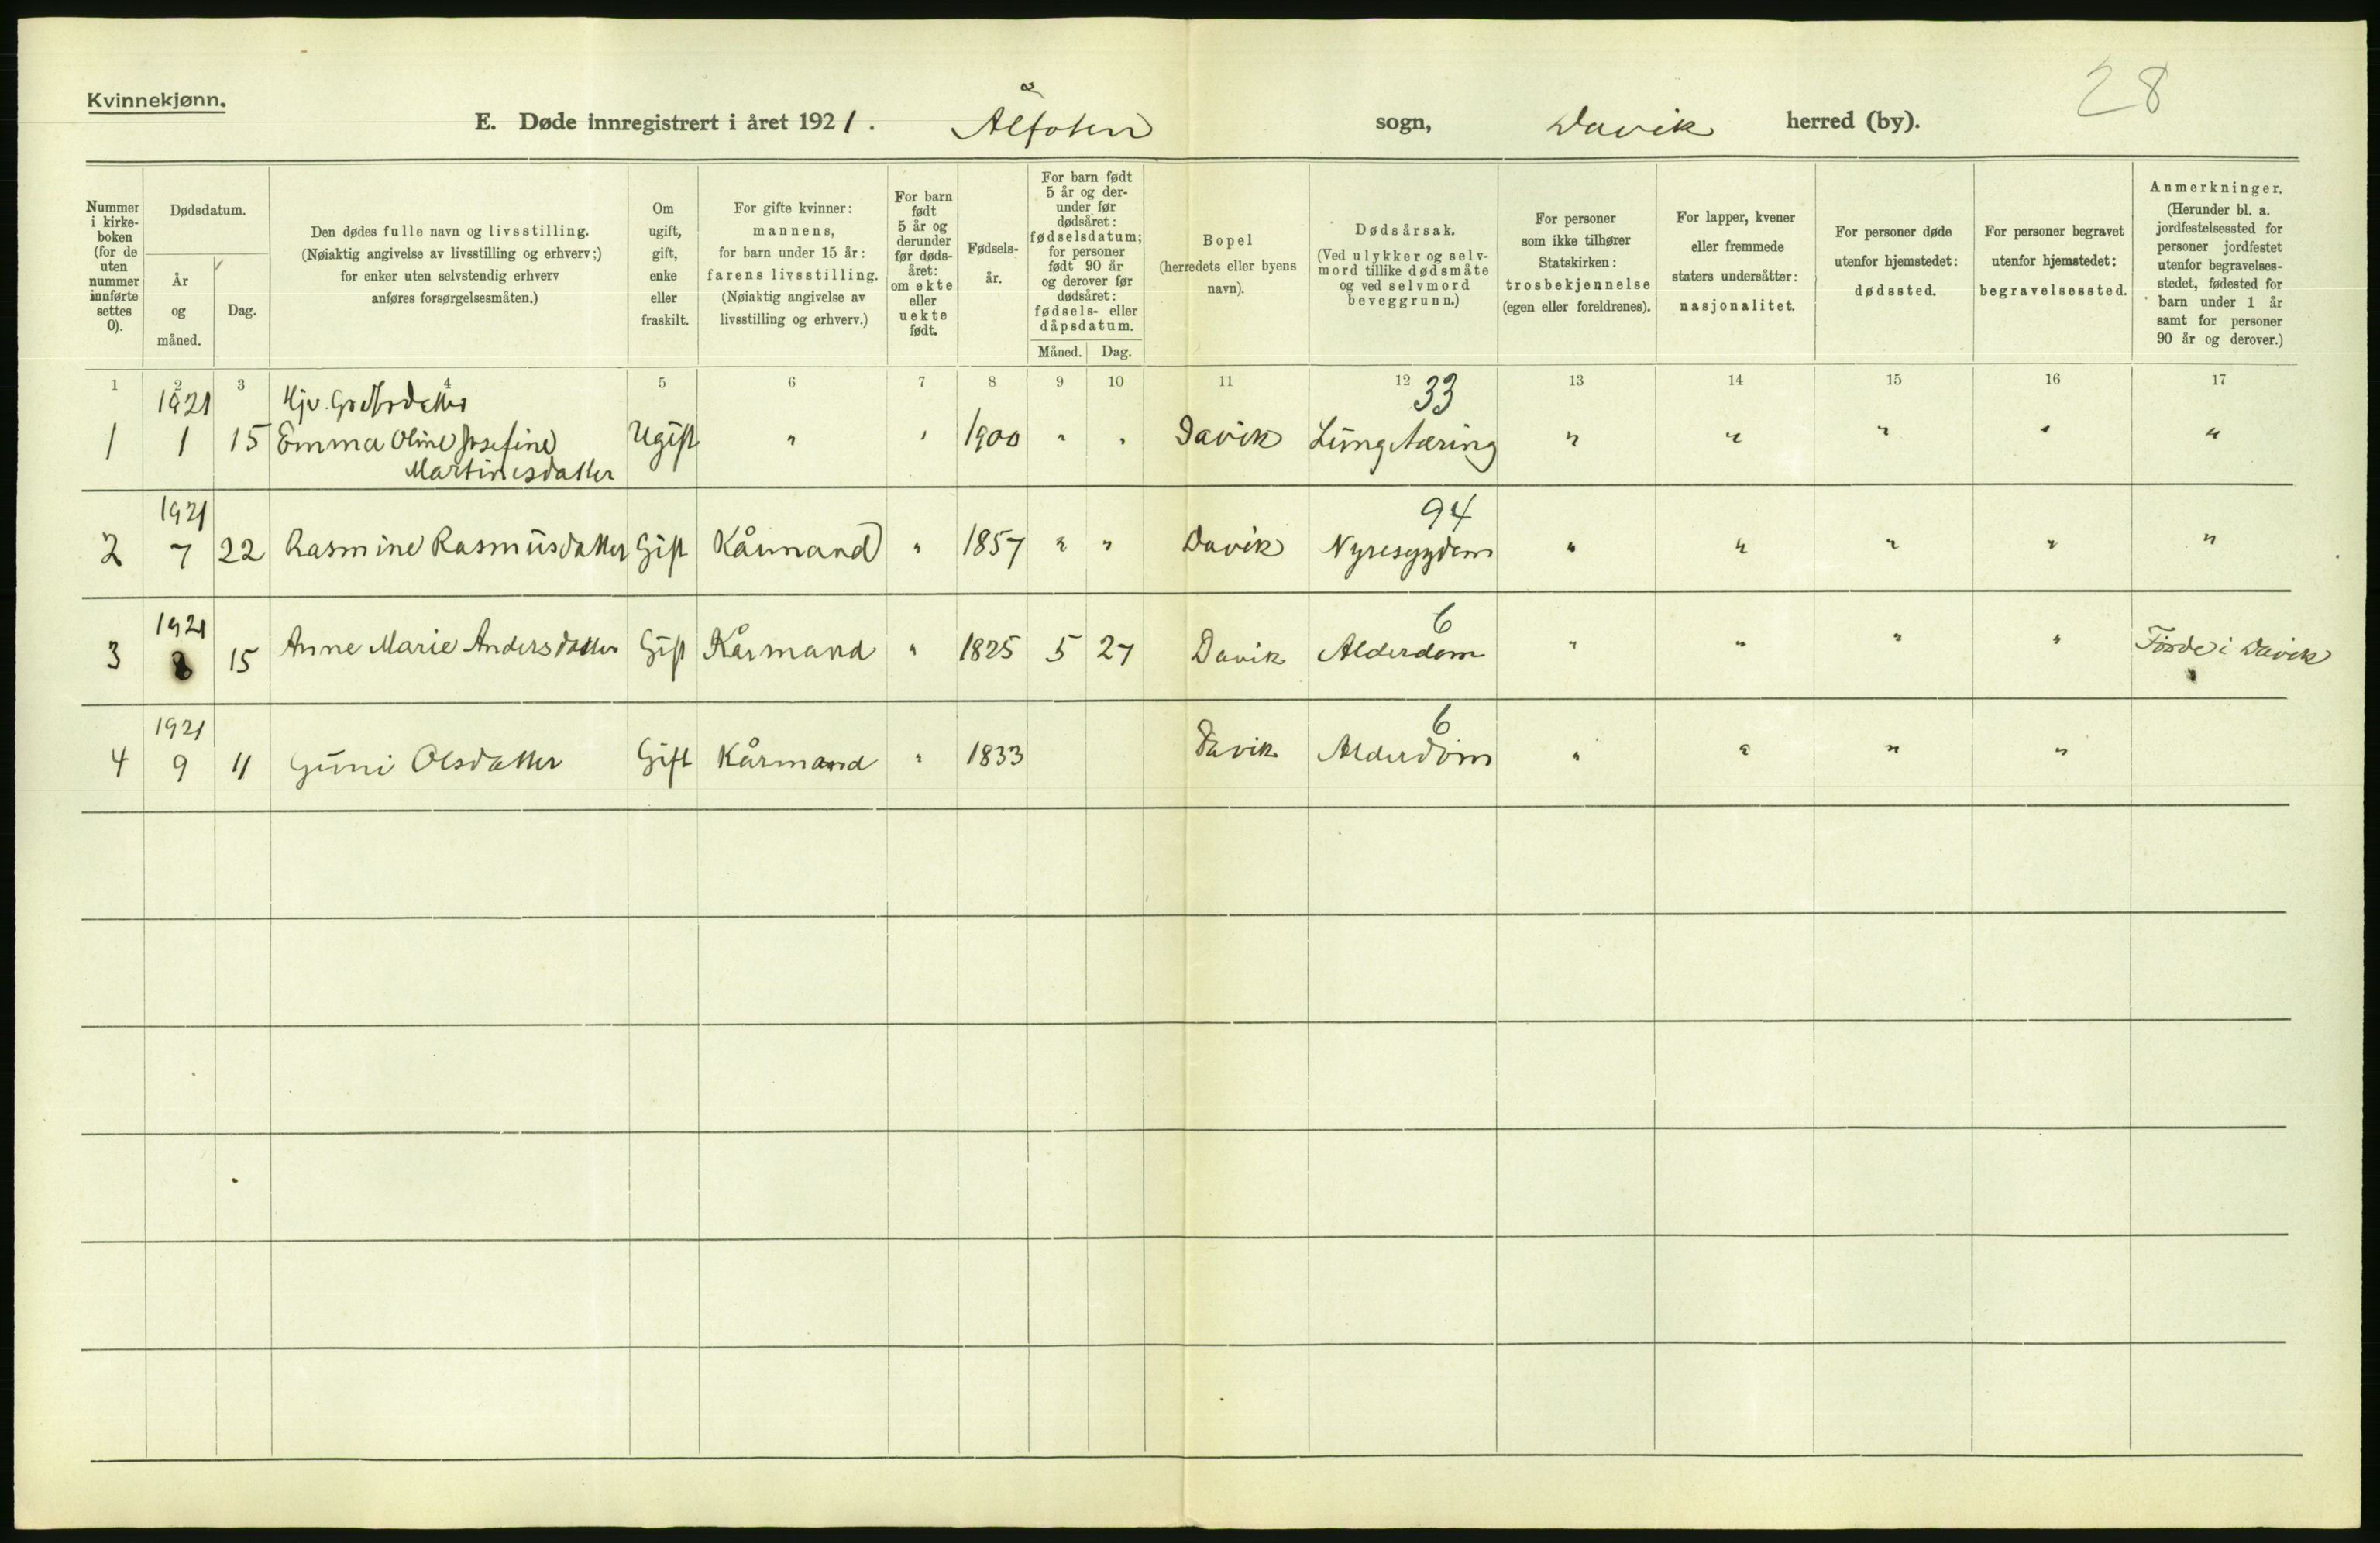 Kvinnekjønn.
28
E. Døde innregistrert i året 1921. Ålfoten sogn, Davik herred (by).
Nummer i kirke-boken (for de uten nummer innførte settes 0).
Dødsdatum.
År og måned.
Dag.
Den dødes fulle navn og livsstilling.
(Nøiaktig angivelse av livsstilling og erhverv;)
for enker uten selvstendig erhverv
anføres forsørgelsesmåten.)
Om ugift, gift, enke eller fraskilt.
For gifte kvinner:
mannens,
for barn under 15 år:
farens livsstilling.
(Nøiaktig angivelse av
livsstilling og erhverv.)
For barn født 5 år og derunder før døds-året: om ekte eller uekte født.
Fødsels-år.
For barn født 5 år og der-under før dødsåret: fødselsdatum; for personer født 90 år og derover før dødsåret: fødsels- eller dåpsdatum.
Måned. Dag.
Bopel
(herredets eller byens
navn).
Dødsårsak.
(Ved ulykker og selv-
mord tillike dødsmåte
og ved selvmord
beveggrunn.)
For personer
som ikke tilhører
Statskirken:
trosbekjennelse
(egen eller foreldrenes).
For lapper, kvener
eller fremmede
staters undersåtter:
nasjonalitet.
For personer døde
utenfor hjemstedet:
dødssted.
For personer begravet
utenfor hjemstedet:
begravelsessted.
Anmerkninger.
(Herunder bl. a.
jordfestelsessted for
personer jordfestet
utenfor begravelses-
stedet, fødested for
barn under 1 år
samt for personer
90 år og derover.)
1 2 3 4 5 6 7 8 9 10 11 12 13 14 15 16 17
1921 33
1 1 15 Emma Oline Josefine Ugift " " 1900 " " Davik Lungetæring " " " " "
Martinesdatter
1921 94
2 7 22 Rasmine Rasmusdatter Gift Kårmand " 1857 " " Davik Nyresygdom " " " " "
1921 6
3 8 15 Anne Marie Andersdatter Gift Kårmand " 1825 5 27 Davik Alderdom " " " " Førde i Davik
1921 6
4 9 11 Guni Olsdatter Gift Kårmand " 1833 Davik Alderdom " " " "